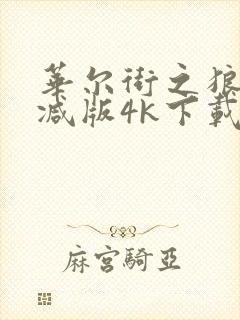 华尔街之狼
减版4K下载
麻宫騎亞